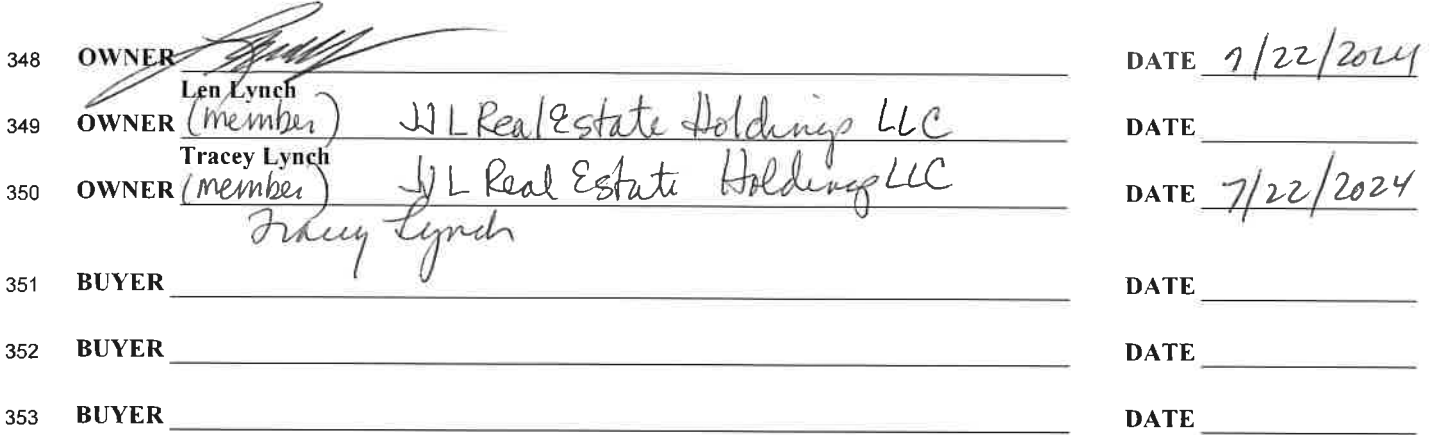 348 OWNER DATE 7/22/2024
Len Lynch
349 OWNER (member) JJL Real Estate Holdings LLC DATE
Tracey Lynch
350 OWNER (member) JJL Real Estate Holdings LLC DATE 7/22/2024
Tracey Lynch
351 BUYER DATE
352 BUYER DATE
353 BUYER DATE